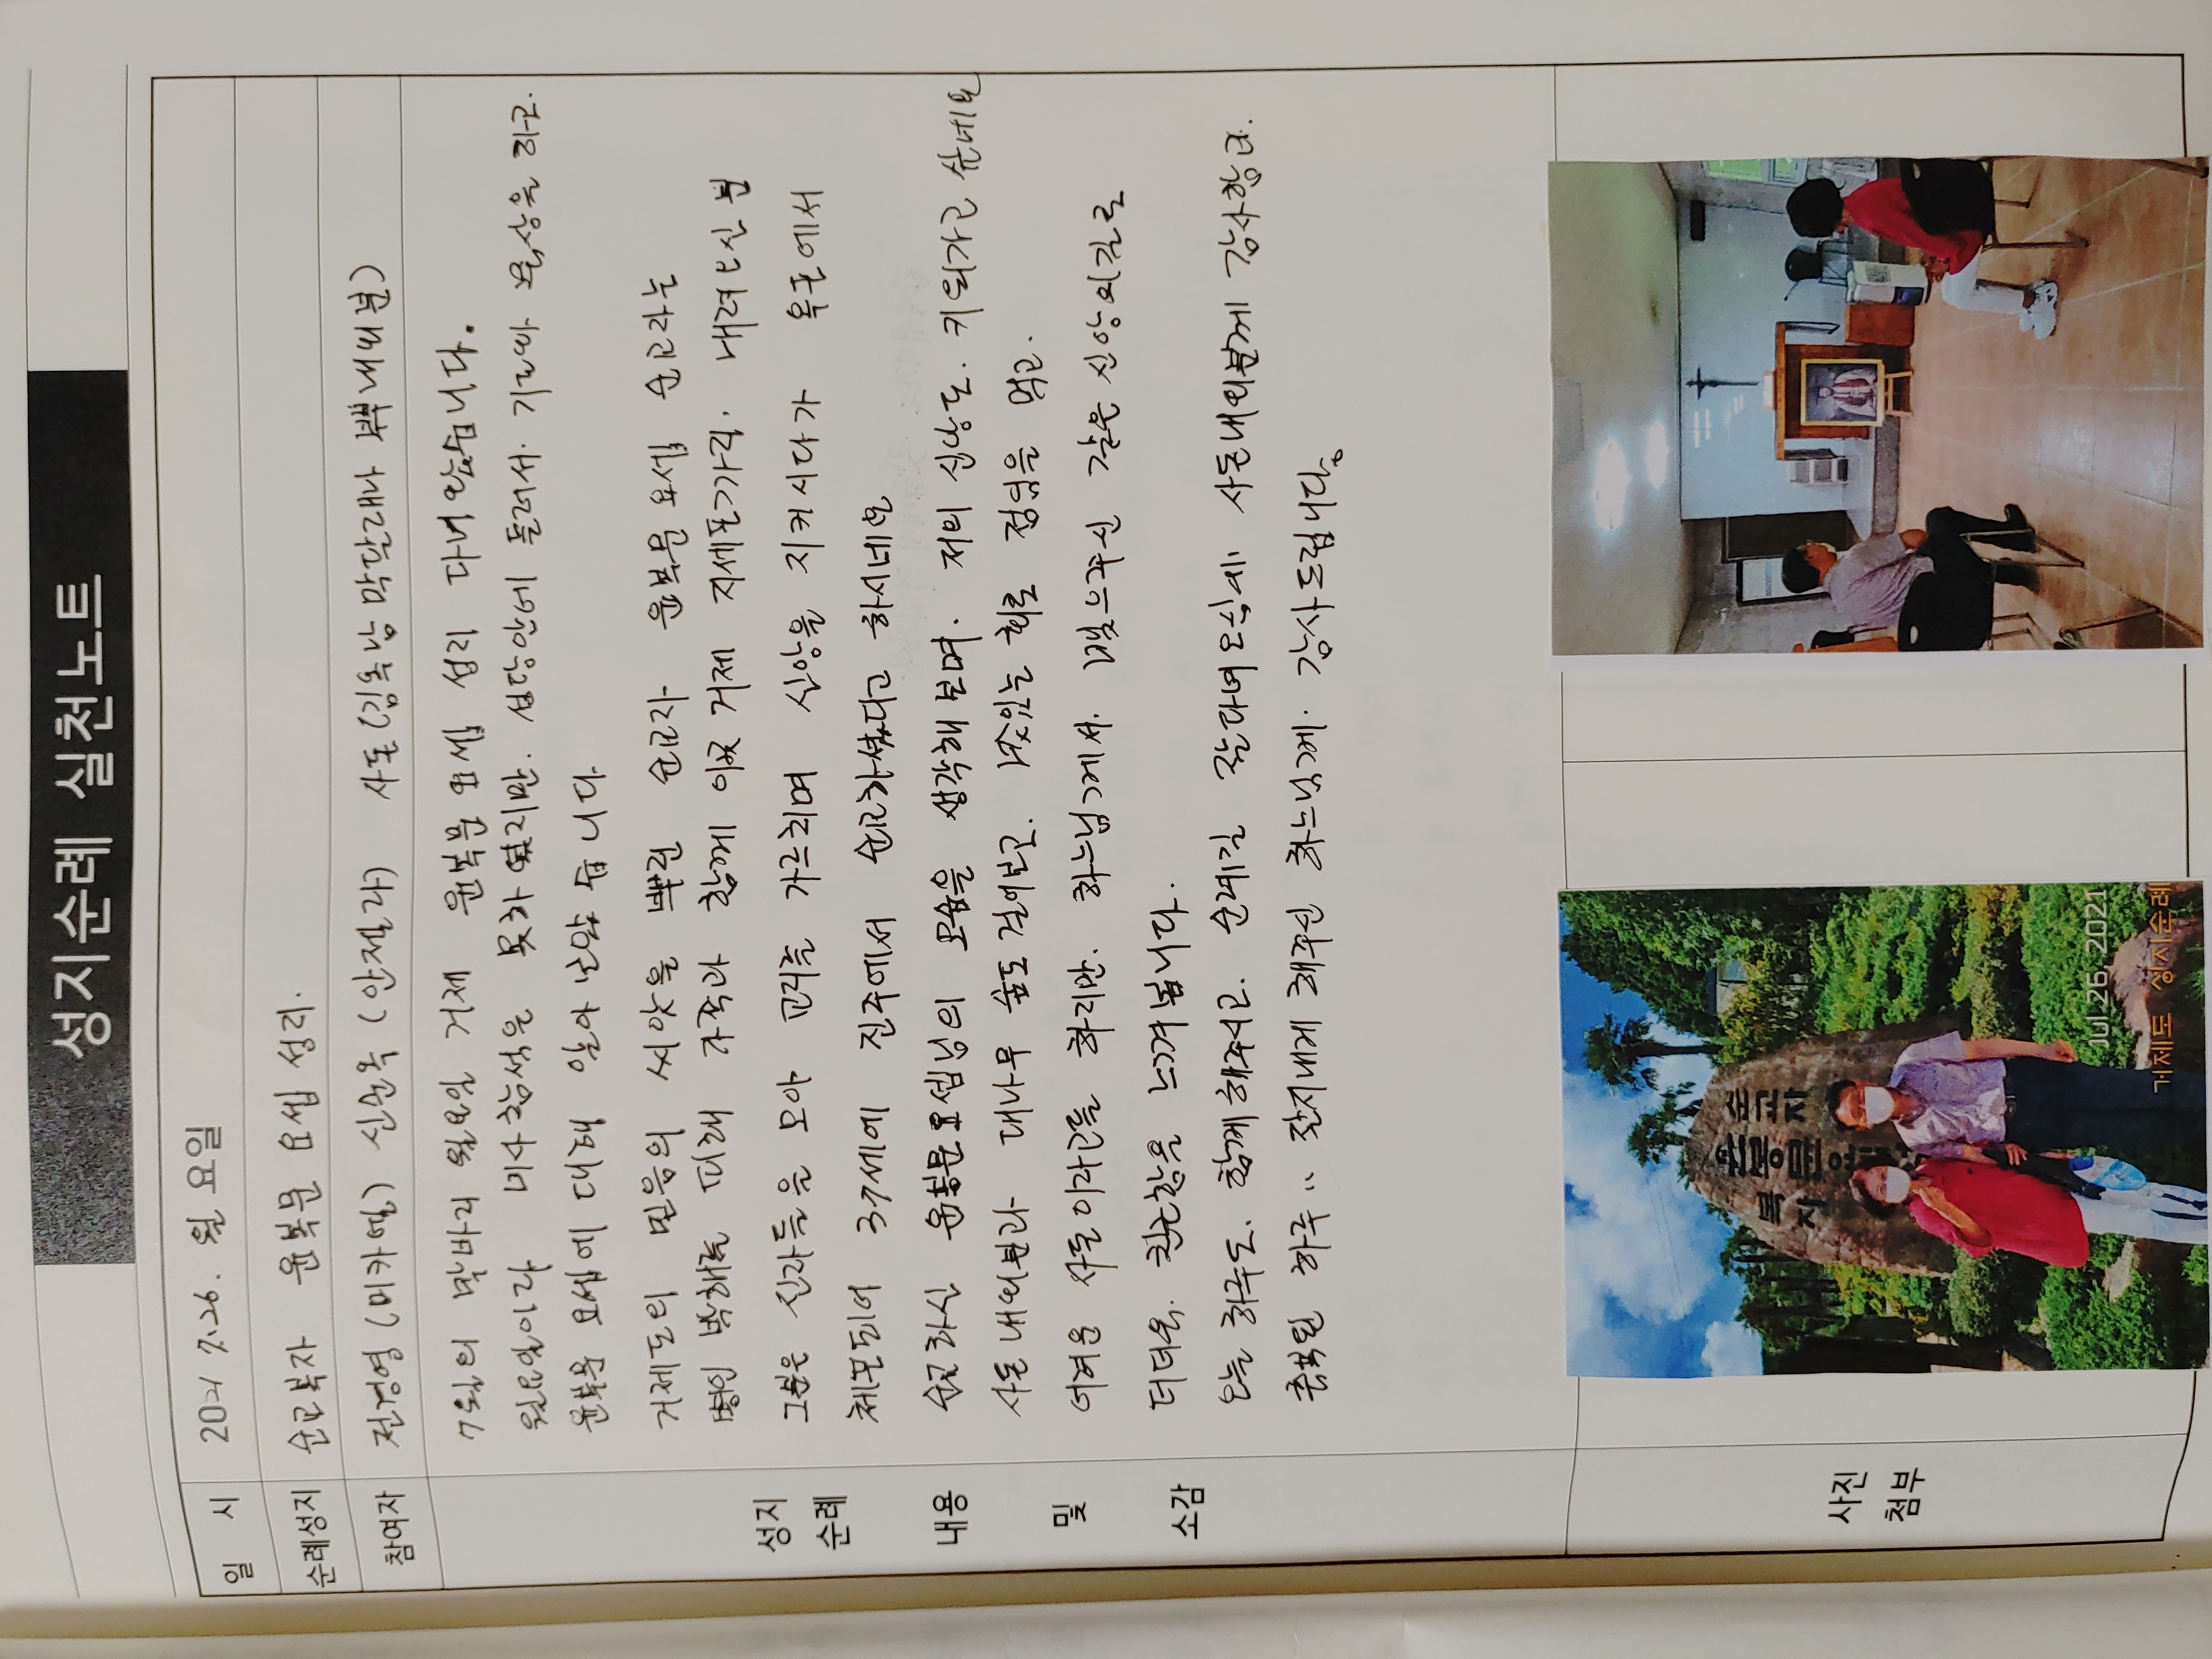 성지순례 실천노트
일 시 2021 7.26. 월요일
순례성지 순교복자 윤봉문 요셉 성지.
참여자 전경영 (미카엘) 신순옥 (안젤라) 사돈(김옥남 막달레나 부부내외분)
7월의 막바지 월요일 거제 윤봉문 요셉 성지 다녀왔습니다.
월요일이라 미사참석은 못자 했지만. 성당안에 들려서. 기도와 묵상을 하고.
윤봉문 요셉에 대해 알아 보았습니다
거제도의 믿음의 씨앗을 뿌린 순교자 윤봉문 요셉 순교자는
병인 박해를 피해 가족과 함께 이곳 거제 지세포가리. 내려오신 분
그분은 신자들을 모아 교리를 가르치며 신앙을 지키시다가 옥포에서
체포되어 37세에 진주에서 순교하셨다고 하시네요
순교하신 윤봉문요셉님의 모습을 생각해 보며. 저의 신앙도. 키워가고 싶네요
사돈 내외분과 대나무 숲도 걸어보고. 맛있는 회로 점심을 먹고.
어려운 사돈이라고들 하지만. 하느님께서. 맺으주신 같은 신앙의길로
더더욱. 친근함을 느껴 봅니다.
오늘 하루도. 함께해주시고. 순례길 잘다녀오심에 사돈내외분께 감사함다.
축복된 하루 :: 잘지내게 해주신 하느님께. 감사드립니다.
성지
순례
내용
및
소감
사진
첨부
순교자
윤봉문요셉
복자
Jul 26, 2021
거제도 성지순례